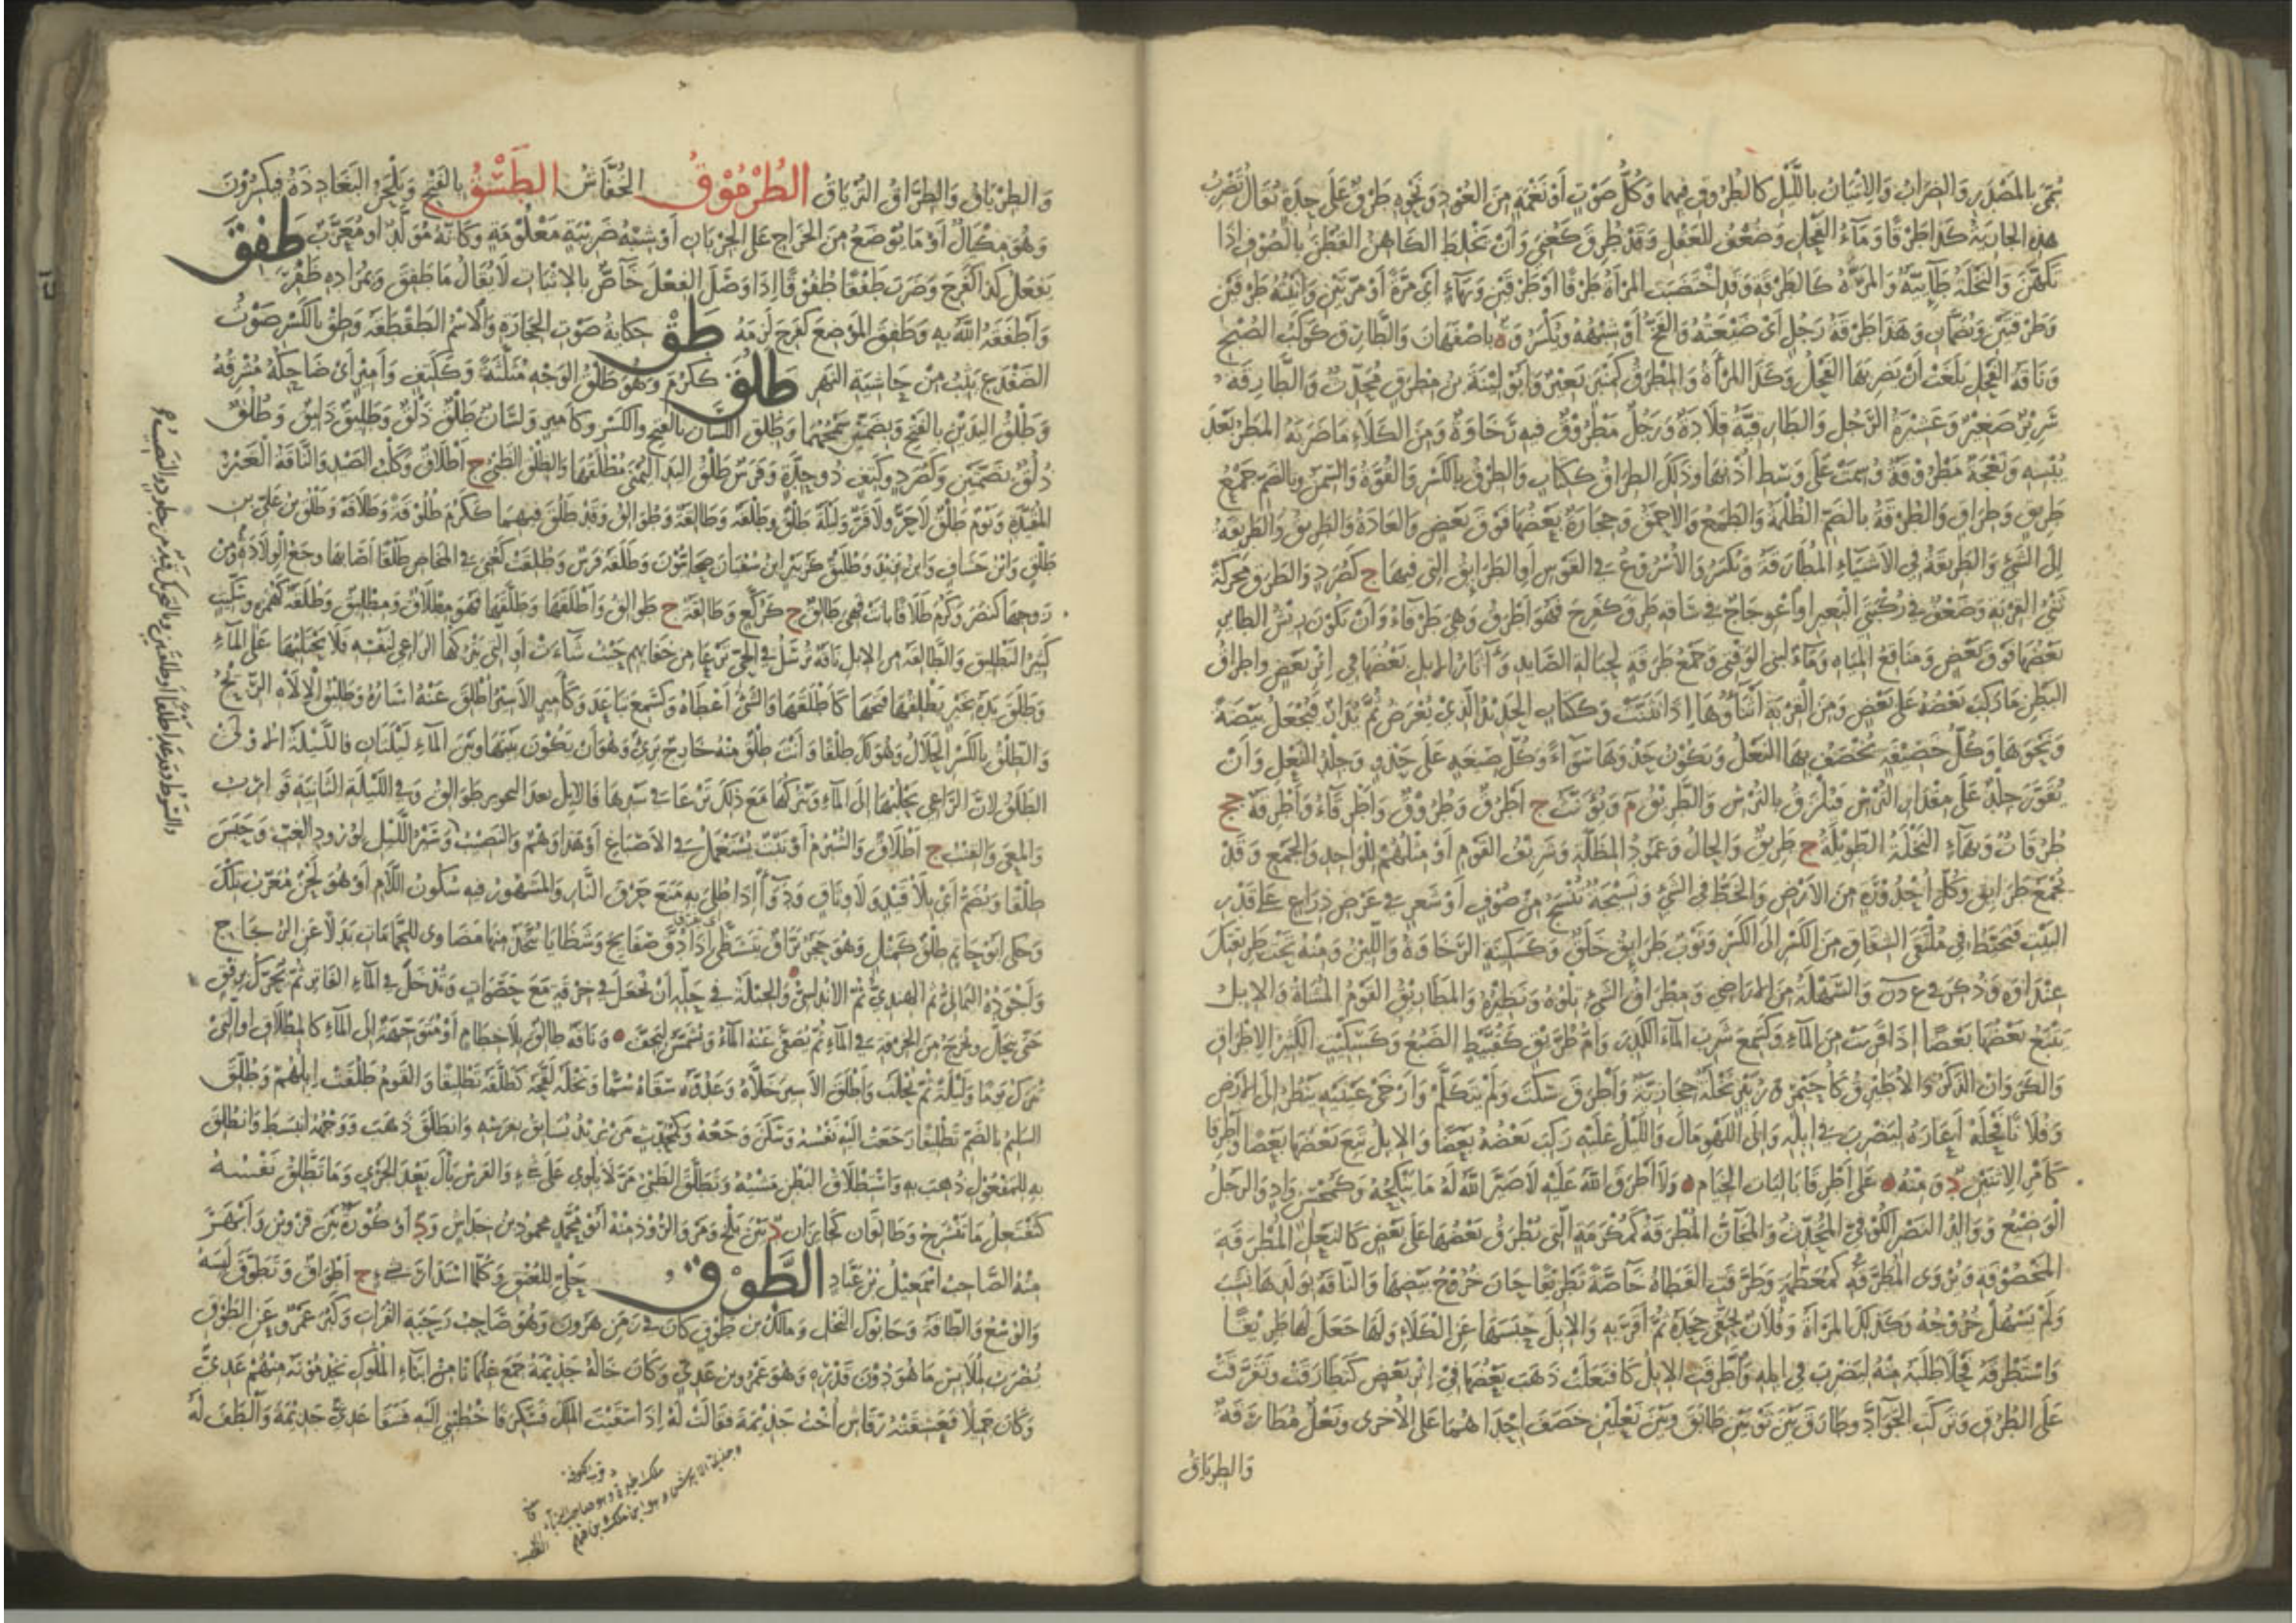 سمي بالمصدر والضراب والاتيان بالليل كالطروق فيهما وكل صوت او نغمة من العود ونحوه طرق على حدة تقال تضرب
هذه الجارية كذا طرقا وماء الفحل وضعف العقل وقد طرق كعني وان تخلط الكاهن القطن بالصوف اذا
تكهن والنخلة طآئية والمرة كالطرقة وقد اختضبت المراة طرقا او طرقتين وبهاء اي مرة او مرتين وانيته طرقين
وطرقتين وبضمان وهذا طرقة رجل اي صنعته والفخ او شبهه ويكسر وة باصفهان والطارق كوكب الصبح
وناقة الفحل بلغت ان يضربها الفحل وكذا المراة والمطرق كمنبر بعير وابو لينة بن مطرق محدث والطارقة
سرير صغير وعشيرة الرجل والطارقية قلادة ورجل مطروق فيه رخاوة ومن الكلاء ماضربه المطر بعد
يبسه ونعجة مطروقة وسمت على وسط اذنها وذلك الطراق ككتاب والطرق بالكسر والقوة والسمن وبالضم جمع
طريق وطراق والطرقة بالضم الظلمة والطمع والاحمق وحجارة بعضها فوق بعض والعادة والطريق والطريقة
الى الشيء والطريقة في الاشياء المطارقة وتكسر والاسروع في القوس او الطرايق التي فيها ج كصرد والطرق محركة
ثني القربة وضعف في ركبتي البعير او اعوجاج في ساقه طرق كفرح فهو اطرق وهي طرقاء وان تكون ريش الطاير
بعضها فوق بعض ومناقع المياه وماء لبني الوقبى وجمع طرقة لحبالة الصايد وآثار الابل بعضها في اثر بعض واطراق
البطن ماركب بعضه على بعض ومن القربة اثناؤها اذا تثنت وككتاب الحديد الذي يعرض ثم يدار فيجعل بيضة
ونحوها وكل خصيفة تخصف بها النعل ويكون حذوها سواء وكل صنعة على حذو وجلد النعل وان
يقور جلد على مقدار الترس فيلزق بالترس والطريق م ويؤنث ج اطرق وطرق واطرقاء واطرقة جج
طرقات وبهاء النخلة الطويلة ج طريق والحال وعمود المظلة وشريف القوم او مثلهم للواحد والجمع وقد
تجمع طرايق وكل احدورة من الارض والخط في الشيء ونسيجة تنسج من صوف او شعر في عرض ذراع على قدر
البيت فتخيط في ملتقى الشقاق من الكسر الى الكسر وثوب طرايق خلق وكسكينة الرخاوة واللين ومنه تحت طريقتك
عنداوة وذكر في ع د ن والسهلة من الاراضي ومطراق الشيء تلوه ونظيره والمطاريق القوم المشاة والابل
يتبع بعضها بعضا اذا قربت من الماء وكسمع شرب الماء الكدر وام طريق كقبيط الضبع وكسكيت الكثير الاطراق
والكروان الذكر والاطيرق كاحيمر وزبير نخلة حجازية واطرق سكت ولم يتكلم وارخى عينيه ينظر الى الارض
وفلانا فحله اعاره ليضرب في ابله والى اللهو مال والليل عليه ركب بعضه بعضا والابل تبع بعضها بعضا واطرقا
كامر الاثنين د ومنه على اطرقا باليات الخيام ولا اطرق الله عليه لاصير الله له ماينكحه وكمحسن واد والرجل
الوضيع ووالد النضر الكوفي المحدث والمجان المطرقة كمكرمة التي يطرق بعضها على بعض كالنعل المطرقة
المخصوفة ويروى المطرقة كمعظمة وطرقت القطاة خاصة تطريقا حان خروج بيضها والناقة بولدها نشب
ولم يسهل خروجه وكذلك المراة وفلان بحقي جحده ثم اقر به والابل حبسها عن الكلاء ولها جعل لها طريقا
واستطرقه فحلا طلبه منه ليضرب في ابله واطرقت الابل كافتعلت ذهب بعضها في اثر بعض كتطارقت وتفرقت
على الطرق وتركت الجواد وطارق بين ثوبين طابق وبين نعلين خصف احداهما على الاخرى ونعل مطارقة
والطرياق
والطرياق والطراق الترياق الطرموق الخفاش الطسق بالفتح ويلحن البغاددة فيكسرون
وهو مكيال او مايوضع من الخراج على الجربان او شبه ضريبة معلومة وكانه مولد او معرب طفق
يفعل كذا كفرح وضرب طفقا وطفوقا اذا وصل الفعل خاص بالاثبات لايقال ماطفق وبمراده ظفر
واطفقه الله به وطفق الموضع كفرح لزمه طق حكاية صوت الحجارة والاسم الطقطقة وطق بالكسر صوت
الضفدع يثب من حاشية النهر طلق ككرم وهو طلق الوجه مثلثة وككتف وامير اي ضاحكه مشرقه
وطلق اليدين بالفتح وبضمتين سمحهما وطلق اللسان بالفتح والكسر وكامير ولسان طلق ذلق وطليق ذليق وطلق
ذلق بضمتين وكصرد وكتف ذو حدة وفرس طلق اليد اليمنى مطلقها والطلق الظبي ج اطلاق وكلب الصيد والناقة الغير
المقيدة ويوم طلق لاحر ولا قر وليلة طلق وطلقة وطالقة وطوالق وقد طلق فيهما ككرم طلوقة وطلاقة وطلق بن علي بن
طلق وابن خشاف وابن يزيد وطليق كزبير ابن سفيان صحابيون وطلقة فرس وطلقت كعني في المخاض طلقا اصابها وجع الولادة ومن
زوجها كنصر وكرم طلاقا بانت فهي طالق ج كركع وطالقة ج طوالق واطلقها وطلقها فهو مطلاق ومطليق وطلقة كهمزة وسكيت
كثير التطليق والطالقة من الابل ناقة ترسل في الحي ترعى من جنابهم حيث شاءت او التي يتركها الراعي لنفسه فلا يحتلبها على الماء
وطلق يده بخير يطلقها فتحها كاطلقها والشيء اعطاه وكسمع تباعد وكامير الاسير اطلق عنه اساره وطليق الاله الريح
والطلق بالكسر الحلال وهو لك طلقا وانت طلق منه خارج بريء وهو ان يكون بينها وبين الماء ليلتان فالليلة الاولى
الطلق لان الراعي يخليها الى الماء ويتركها مع ذلك ترعى في سيرها فالابل بعد التحويز طوالق وفي الليلة الثانية قوارب
والمعى والقتب ج اطلاق والشبرم او نبت يستعمل في الاصباغ او هذا وهم والنصيب وسير الليل لورود الغب وحبس
طلقا ويضم اي بلا قيد ولا وثاق ودواء اذا طلي به منع حرق النار والمشهور فيه سكون اللام او هو لحن معرب تلك
وحكى ابو حاتم طلق كمثل وهو حجر براق يتشظى اذا دق صفايح وشظايا يتخذ منها مضاوي للحمامات بدلا عن الزجاج
واجوده اليماني ثم الهندي ثم الاندلسي والحيلة في حله ان تجعل في خرقة مع حصوات وتدخل في الماء الفاتر ثم يحرك برفق
حتى ينحل ويخرج من الخرقة في الماء ثم يصفى عنه الماء ويشمس ليجف وناقة طالق بلا خطام او متوجهة الى الماء كالمطلاق او التي
تترك يوما وليلة ثم تحلب واطلق الاسير خلاه وعدوه سقاه سما ونخله لقحه كطلقه تطليقا والقوم طلقت ابلهم وطلق
السليم بالضم تطليقا رجعت اليه نفسه وسكن وجعه وكمحدث من يريد يسابق بفرسه وانطلق ذهب ووجهه انبسط وانطلق
به للمفعول ذهب به واستطلاق البطن مشيه وتطلق الظبي مر لايلوي على شيء والفرس بال بعد الجري وما تطلق نفسه
كتفتعل ماتنشرح وطالقان كخابران د بين بلخ ومرو الروذ منه ابو محمد محمود بن خداش ود او كورة بين قزوين وابهر
منه الصاحب اسمعيل بن عباد الطوق حلي للعنق وكلما استدار بشيء ج اطواق وتطوق لبسه
والوسع والطاقة وحابول النخل ومالك بن طوق كان في زمن هرون وهو صاحب رحبة الفرات وكبر عمرو عن الطوق
يضرب لملابس ماهو دون قدره وهو عمرو بن عدي وكان خاله جذيمة جمع غلمانا من ابناء الملوك يخدمونه منهم عدي
وكان جميلا فعشقته رقاش اخت جذيمة فقالت له اذا سقيت الملك فسكر فاخطبني اليه فسقا عدي جذيمة والطف له